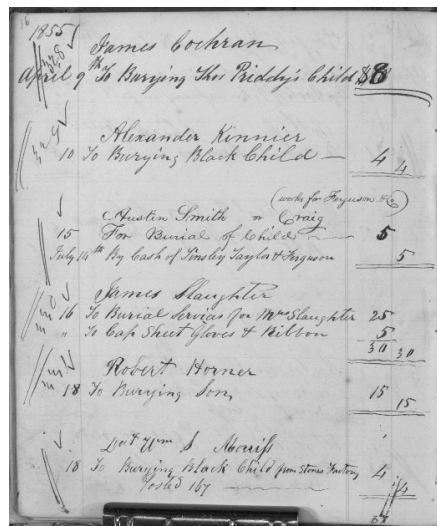 16
1855
328
James Cochran
April 9th To Burying Thos Priddy's Child $8
329
Alexander Kinnier
10 To Burying Black Child — 4 4
(works for Ferguson &Co)
Austin Smith or Craig
15 For Burial of Child 5
July 14th By Cash of Tinsley Taylor & Ferguson 5
330
James Slaughter
16 To Burial Servias for Mrs Slaughter 25
" To Cap Sheet Gloves & Ribbon 5
30 30
Robert Horner
18 To Burying Son 15
15
Wm S
18 To Burying Black Child from Stones Factory 4
Posted 167 4